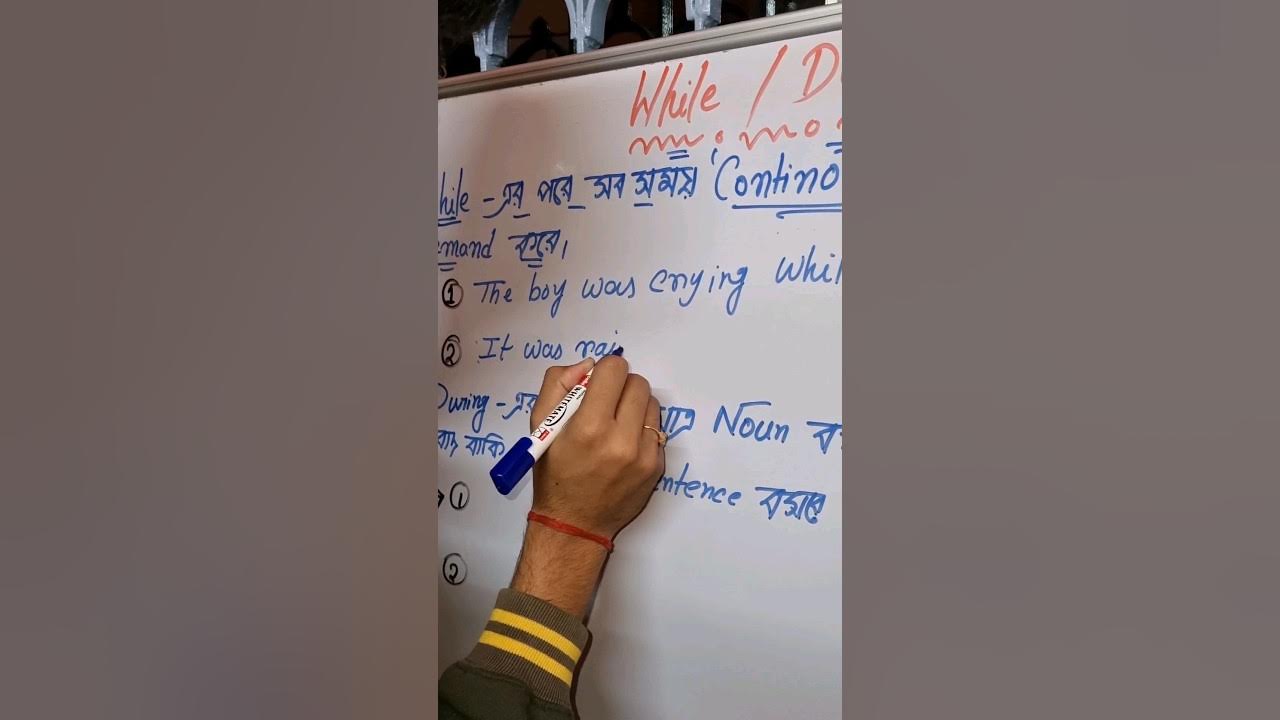 While / D
hile - এর পরে সব সময় 'Contino
emand করে।
① The boy was crying whil
② It was rai
During - এর Noun
বাকি
entence বসবে
①
②
WHITEMATE